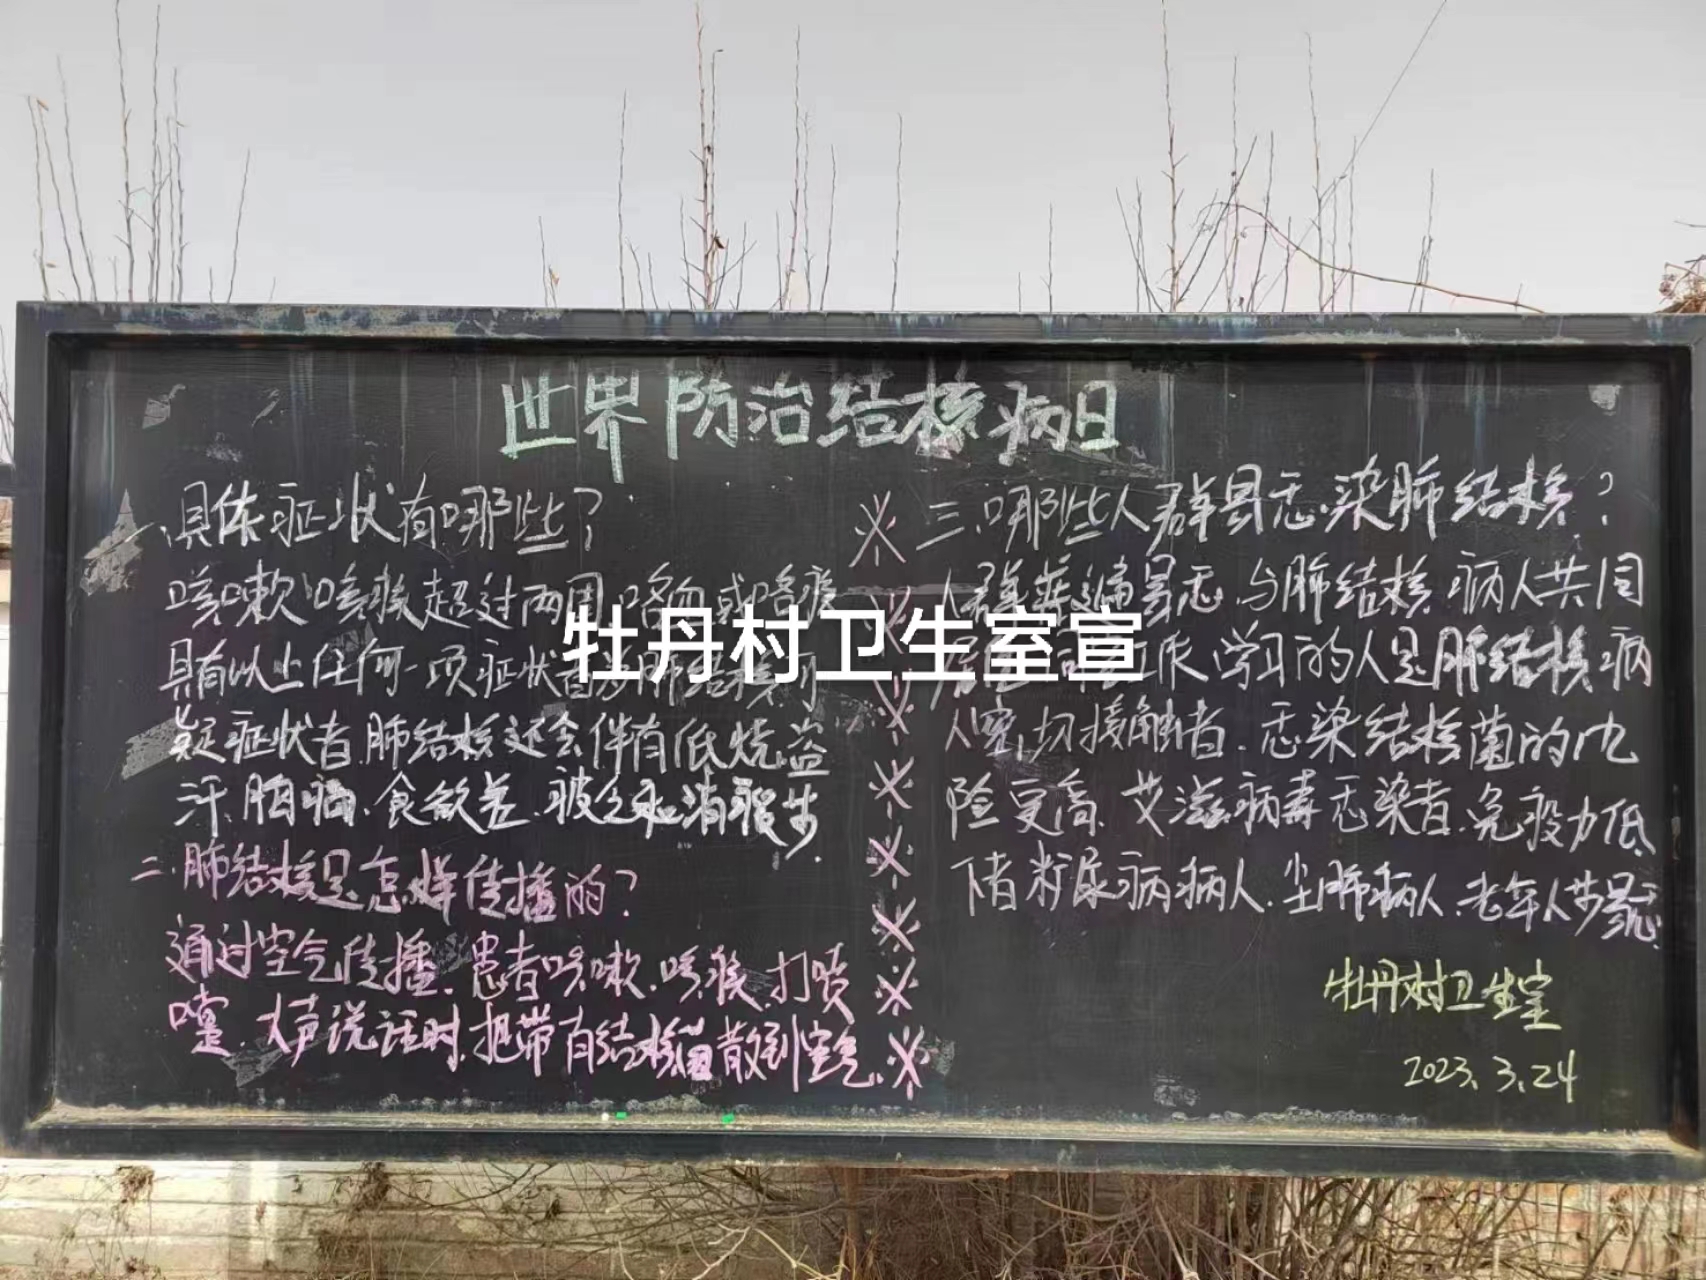 世界防治结核病日
一、具体症状有哪些?
咳嗽、咳痰超过两周,咯血或咯痰
具有以上任何一项症状者为肺结核可
疑症状者.肺结核还会伴有低烧.盗
汗.胸痛.食欲差.疲乏和消瘦等.
二.肺结核是怎样传播的?
通过空气传播.患者咳嗽.咳痰.打喷
嚏.大声说话时.把带有结核菌散到空气.
三.哪些人群易感染肺结核?
人群普遍易感.与肺结核病人共同
工作、学习的人是肺结核病
人密切接触者.感染结核菌的
险更高.艾滋病毒感染者.免疫力低
下者.尿病病人.尘肺病人.老年人步易感.
牡丹村卫生室
2023.3.24
牡丹村卫生室宣